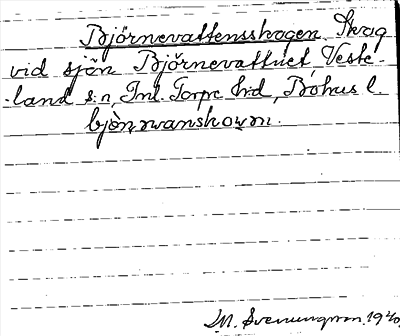 Björnevattensskogen Skog
vid sjön Björnevattnet, Veste-
land s:n, Inl. Torpe h:d, Bohus l.
bjön,vanskowm.
M. Svenungsson. 1920